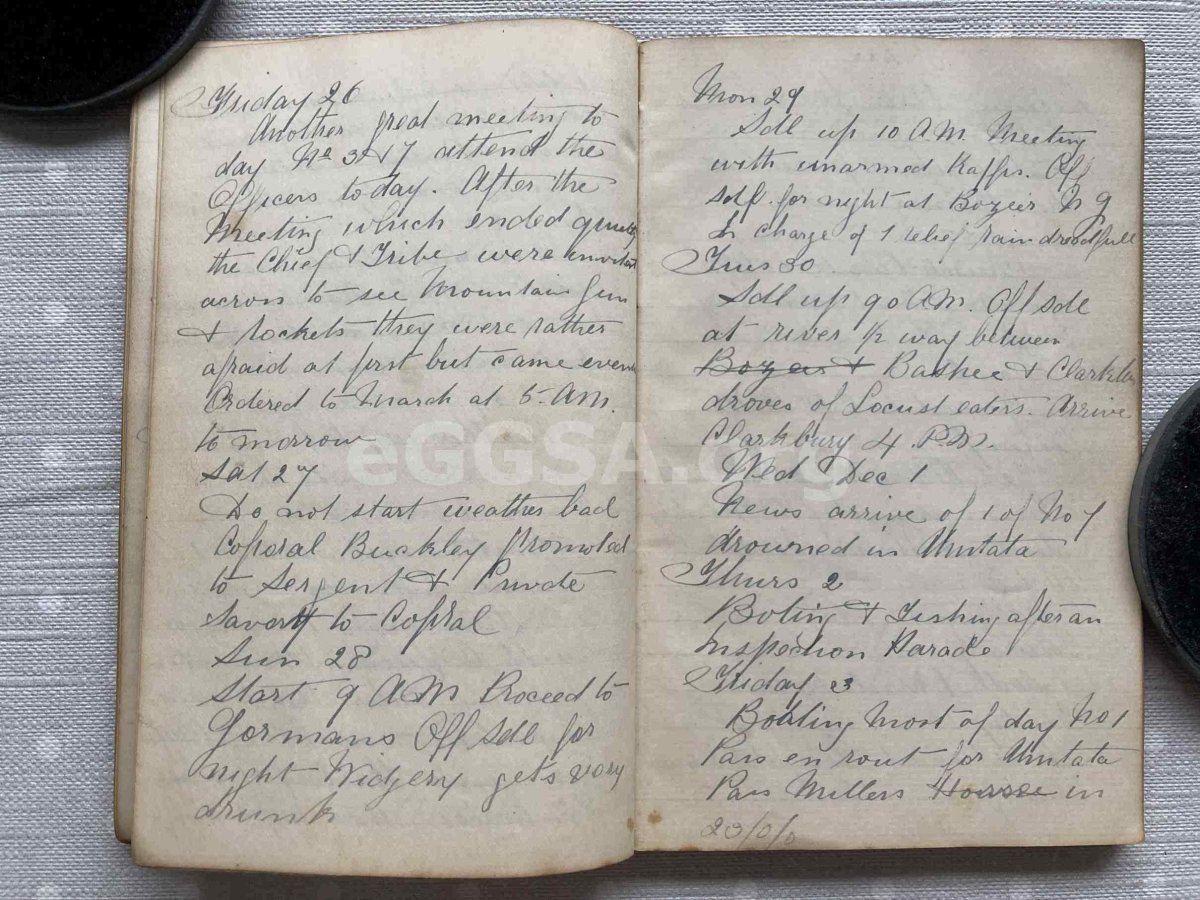 Friday 26
Another great meeting to
day No 3 & 7 attend the
Officers to day. After the
Meeting which ended
the Chief & Tribe were
across to see Mountain Gun
& Rockets they were rather
afraid at first but came even
Ordered to March at 5. AM.
to morrow
Sat 27
Do not start weather bad
Coporal Buckley Promoted
to Sergent & Private
to Coporal
Sun 28
Start 9 AM Proceed to
Gormans Off Sdl for
night Widgery gets very
drunk
Mon 29
Sdl up 10 AM Meeting
with unarmed Kaffrs. Off
sdl. for night at
In charge of 1 relief rain dreadfull
Tues 30
Sdl up 9 0 AM. Off sdl
at river 1/2 way between
Bashee & Clarkbu
droves of Locust eaters. Arrive
Clarkbury 4 P.M.
Wed Dec 1
News arrive of 1 of No 7
drowned in Umtata
Thurs 2
Boting & Fishing after an
Inspection Parade
Friday 3
Boating Most of day No 1
Pass en rout for Umtata
Pass Millers House in
20/0/0
eGGSA.org